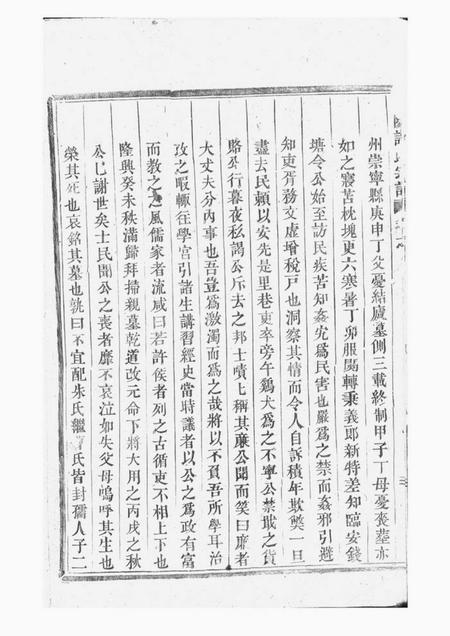 州崇寧縣庚申丁父憂結廬墓側三載終制甲子丁母憂喪塟亦
如之寢苫枕塊更六寒暑丁卯服闋轉秉義郎新特差知臨安錢
塘令公始至訪民疾苦知姦宄爲民害也嚴爲之禁而姦邪引避
知吏胥務文虛增稅戸也洞察其情而令人自訴積年欺獘一旦
盡去民賴以安先是里巷吏卒旁午鷄犬爲之不寧公禁戢之貨
賂公行暮夜私謁公斥去之邦士嘖上稱其亷公聞而笑曰亷者
大丈夫分內事也吾豈爲激濁而爲之哉將以不負吾所學耳治
攻之暇輙徃學宫引諸生講習經史當時議者以公之爲政有富
而教之之風儒家者流咸曰若許侯者列之古循吏不相上下也
隆興癸未秩滿歸拜掃親墓乾道改元命下將大用之丙戌之秋
公已謝世矣士民聞公之喪者靡不哀泣如失父母嗚呼其生也
榮其死也哀銘其墓也孰曰不宜配朱氏繼氏皆封孺人子二